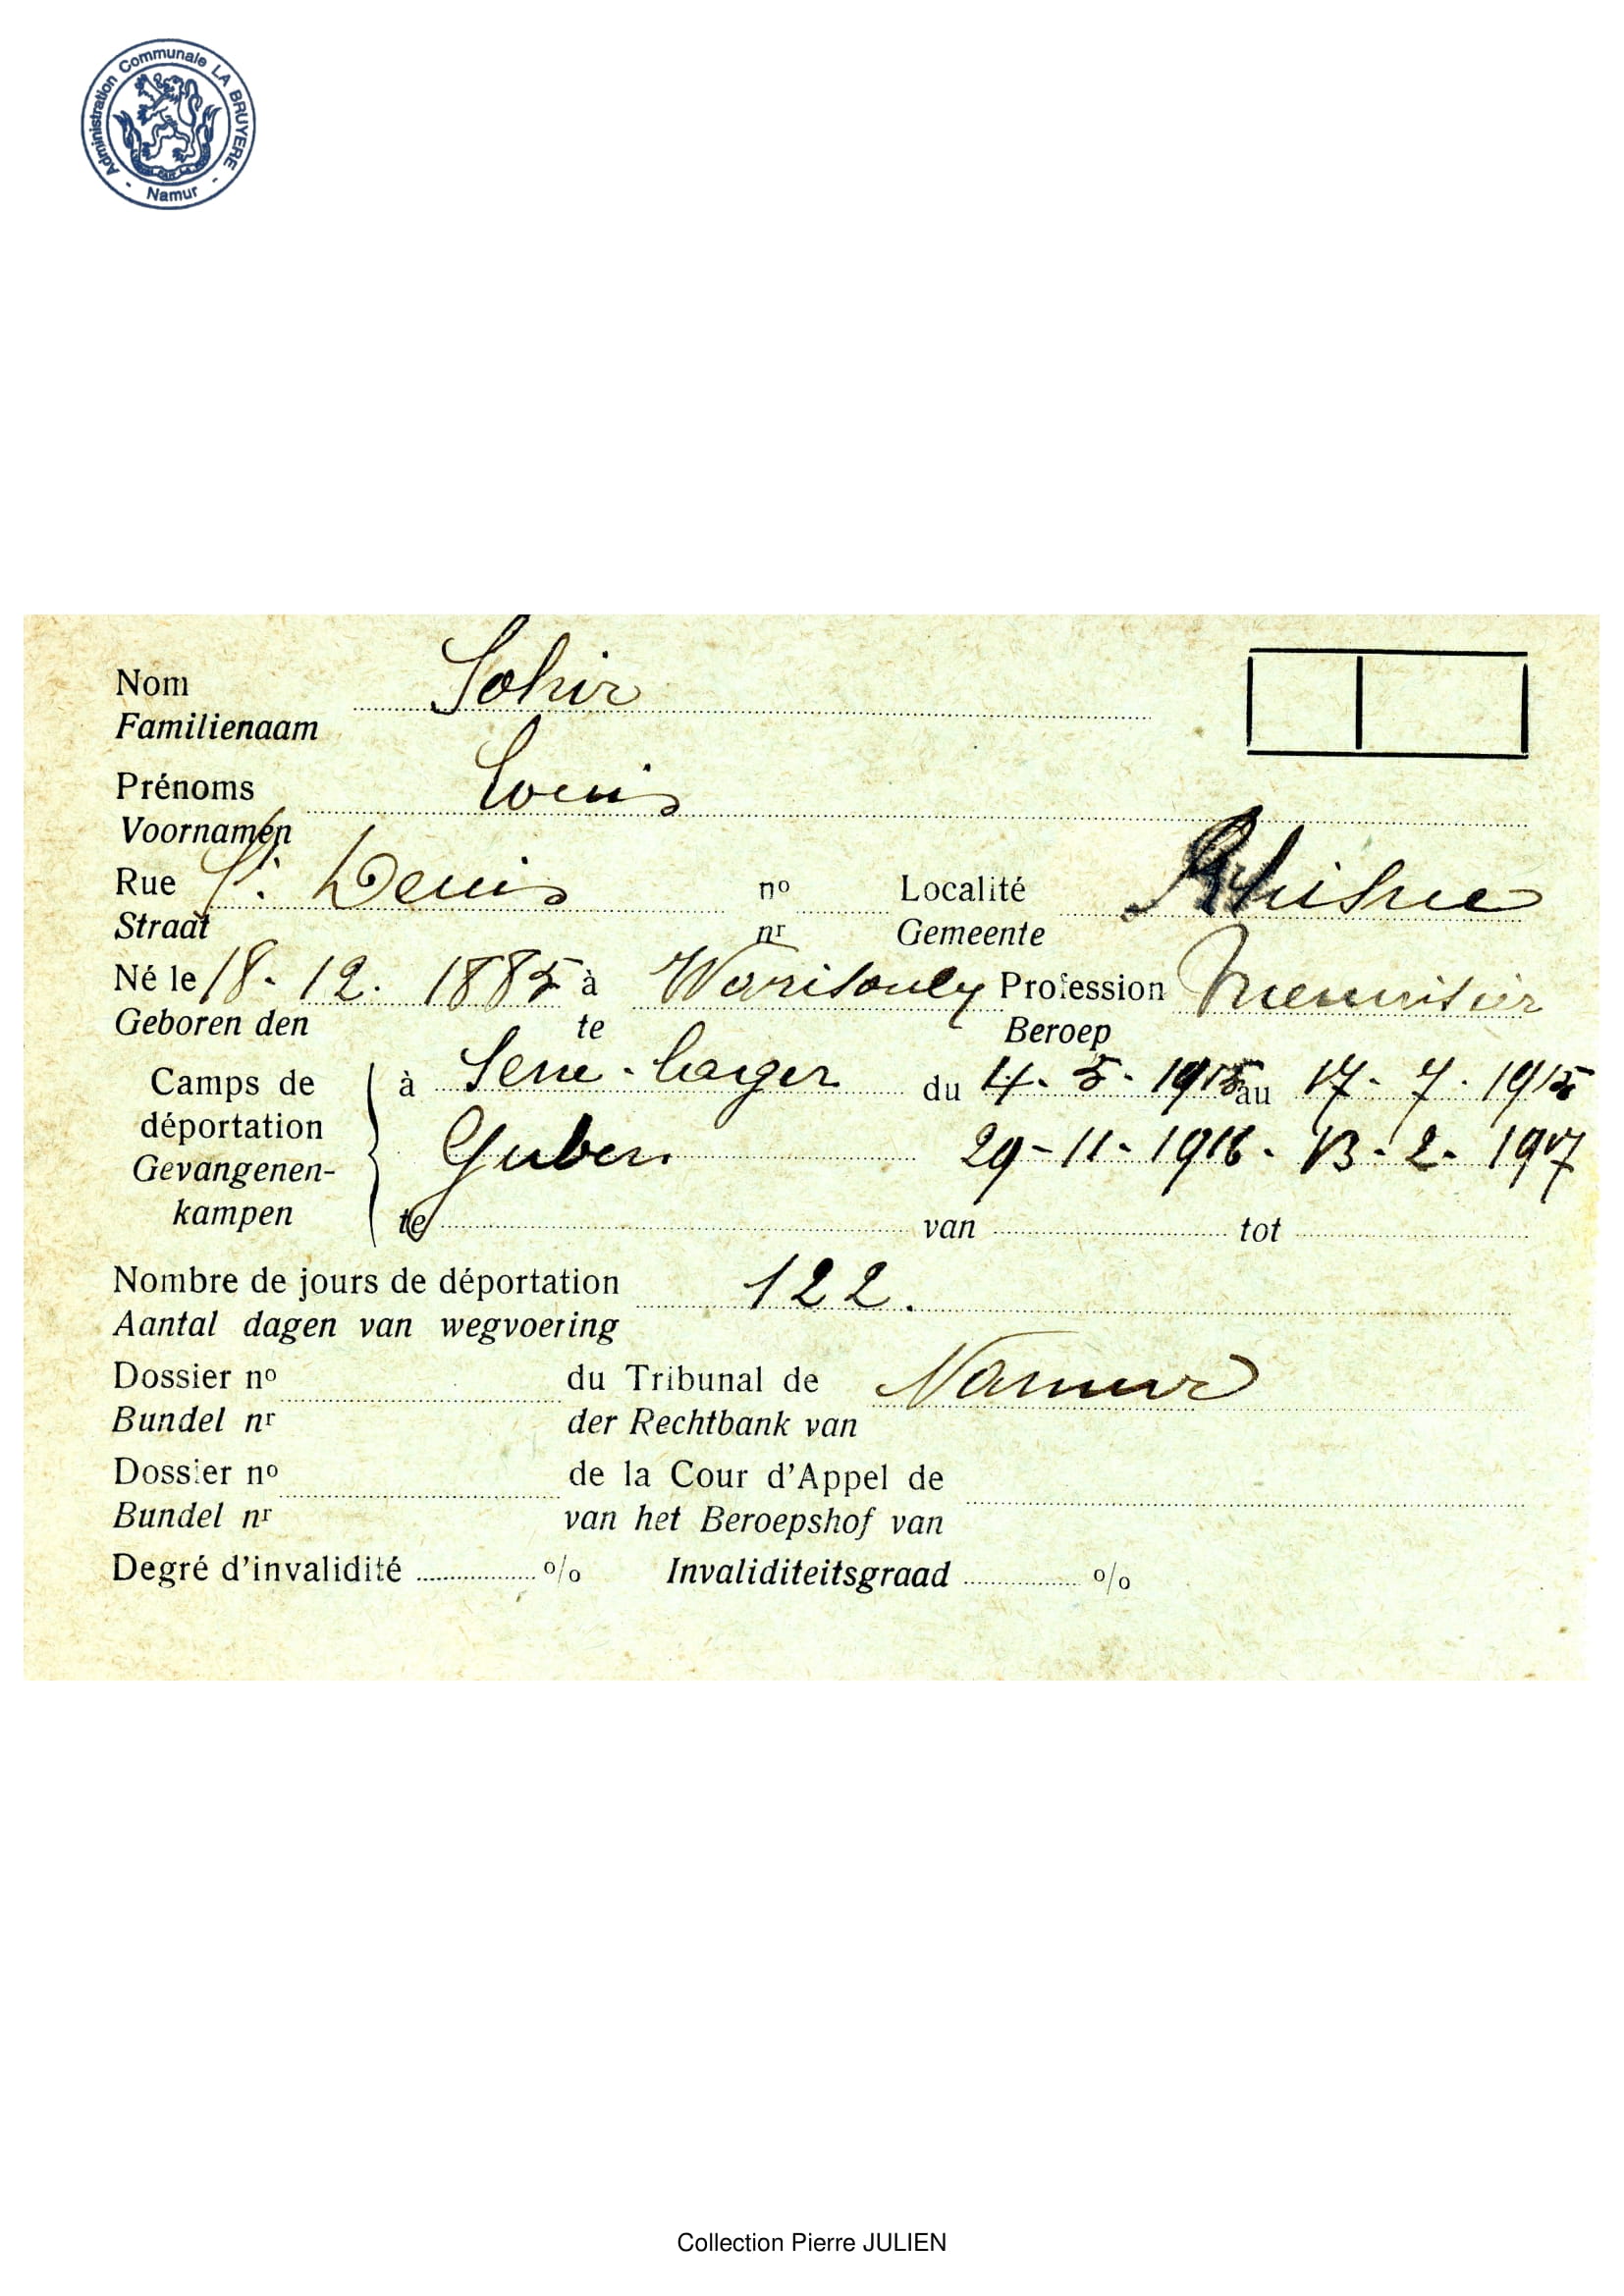 Administration Communale LA BRUYERE - Namur -
Nom Sohir
Familienaam
Prénoms Louis
Voornamen
Rue St. Denis nº Localité Rhisne
Straat nr Gemeente
Né le 18. 12. 1885 à Warisoulx Profession Menuisier
Geboren den te Beroep
Camps de à Sene-Lager du 4. 5. 1915 au 17. 7. 1915
déportation Guben 29-11-1916. 13. 2. 1917
Gevangenen-
kampen te van tot
Nombre de jours de déportation 122.
Aantal dagen van wegvoering
Dossier nº du Tribunal de Namur
Bundel nr der Rechtbank van
Dossier nº de la Cour d'Appel de
Bundel nr van het Beroepshof van
Degré d'invalidité % Invaliditeitsgraad %
Collection Pierre JULIEN